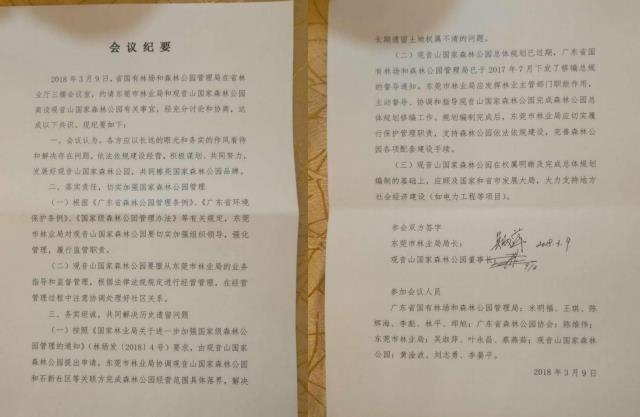 会议纪要
2018年3月9日，省国有林场和森林公园管理局在省林
业厅三楼会议室，约请东莞市林业局和观音山国家森林公园
商谈观音山国家森林公园有关事宜，经充分讨论和协商，达
成以下共识，现纪要如下：
一、会议认为，各方应以长远的眼光和务实的作风看待
和解决存在问题，依法依规建设经营，积极谋划、共同努力，
发展好观音山国家森林公园，共同擦亮国家森林公园品牌。
二、落实责任，切实加强国家森林公园管理
（一）根据《广东省森林公园管理条例》、《广东省环境
保护条例》、《国家级森林公园管理办法》等有关规定，东莞
市林业局对观音山国家森林公园要切实加强组织领导，强化
管理，履行监管职责。
（二）观音山国家森林公园要服从东莞市林业局的业务
指导和监督管理，根据法律法规规定进行经营管理，在经营
管理过程中注意协调处理好社区关系。
三、务实坦诚，共同解决历史遗留问题
（一）按照《国家林业局关于进一步加强国家级森林公
园管理的通知》（林场发〔2018〕4号）要求，由观音山国家
森林公园提出申请，东莞市林业局协调观音山国家森林公园
和石新社区等关联方完成森林公园经营范围具体落界，解决
长期遗留土地权属不清的问题。
（二）观音山国家森林公园总体规划已过期，广东省国
有林场和森林公园管理局已于2017年7月下发了修编总规
的督导通知。东莞市林业局应发挥林业主管部门职能作用，
主动督导、协调和指导观音山国家森林公园完成森林公园总
体规划修编工作。规划编制完成后，东莞市林业局应切实履
行保护管理职责，支持森林公园依法依规建设，完善森林公
园各项配套建设手续。
（三）观音山国家森林公园在权属明晰及完成总体规划
编制的基础上，应顾及国家和省市发展大局，大力支持地方
社会经济建设（如电力工程等项目）。
参会双方签字
东莞市林业局局长： 2018.3.9
观音山国家森林公园董事长：
参加会议人员
广东省国有林场和森林公园管理局：米明福、王琪、陈
辉海、李彪、林平、邓旭；广东省森林公园协会：陈维伟；
东莞市林业局：吴淑萍、叶永昌、蔡燕茹；观音山国家森林
公园：黄淦波、刘志勇、李晏平。
2018年3月9日